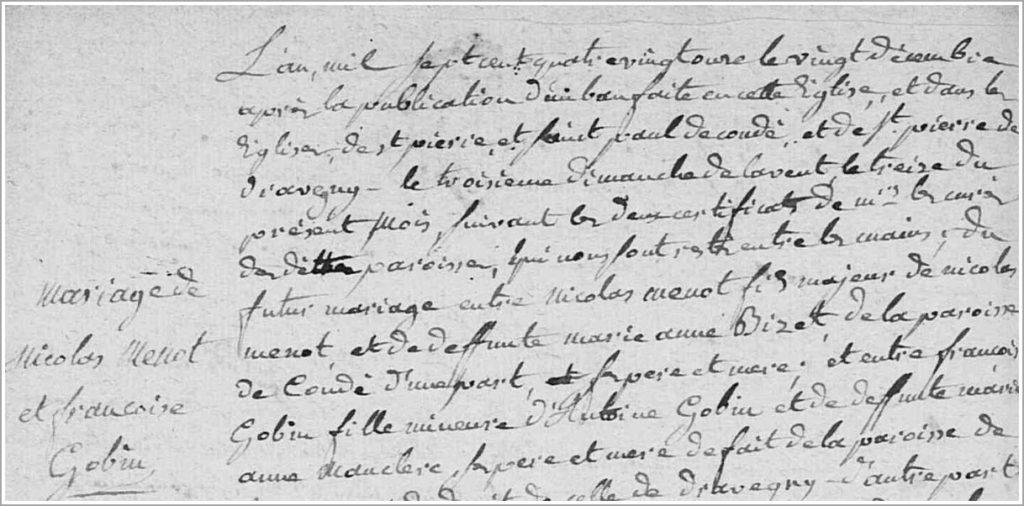 mariage de
nicolas Menot
et francoise
Gobin
L'an, mil sept cent quatrevingt onze le vingt décembre
après la publication d'un ban faite en cette Eglise, et dans les
Eglises, de st pierre, et saint paul de condé, et de st. pierre de
dravegny - le troisieme dimanche de lavent le treize du
présent Mois, suivant les deux certificats de mrs les curés
des dittes paroisses, qui nous sont restés entre les mains, du
futur mariage entre nicolas menot fils majeur de nicolas
menot, et de deffunte marie anne Bizet, de la paroisse
de Condé d'une part, ses pere et mere; et entre francoise
Gobin fille mineure d'Antoine Gobin et de deffunte marie
anne manclere, ses pere et mere de fait de la paroisse de
et de droit de celle de dravegny - d'autre part